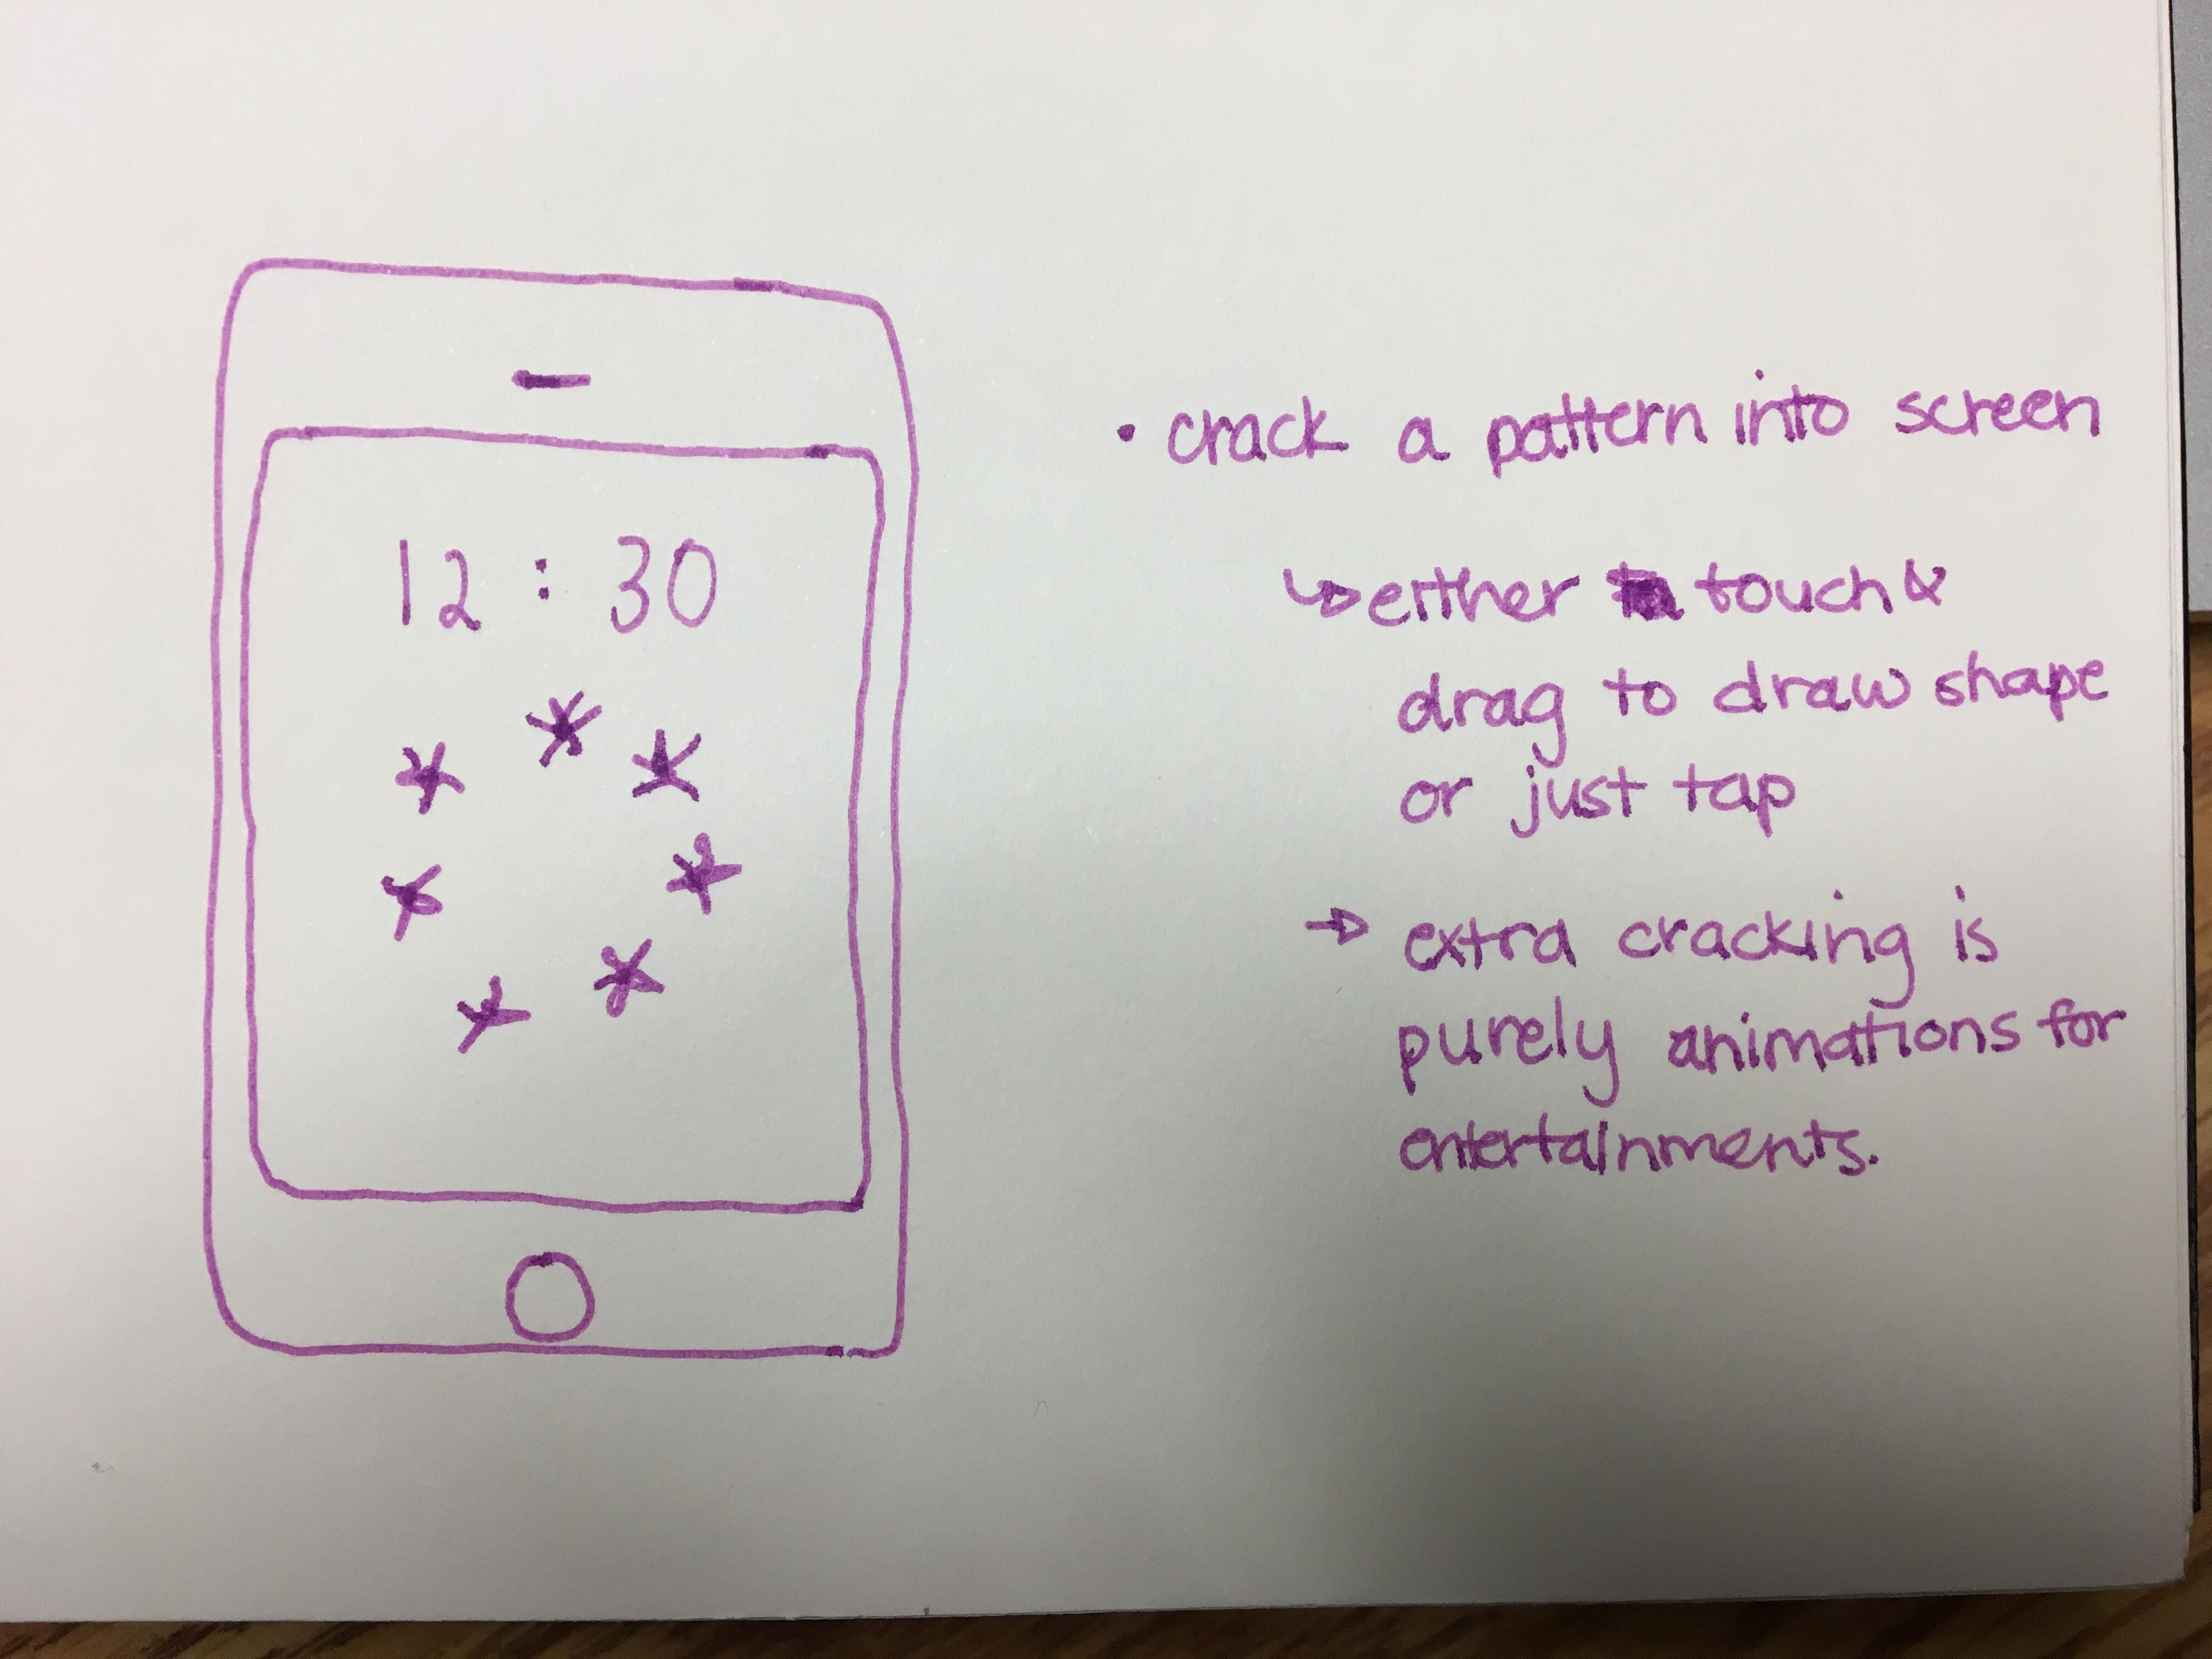 12 : 30
• crack a pattern into screen
↳ either touch &
drag to draw shape
or just tap
→ extra cracking is
purely animations for
entertainments.